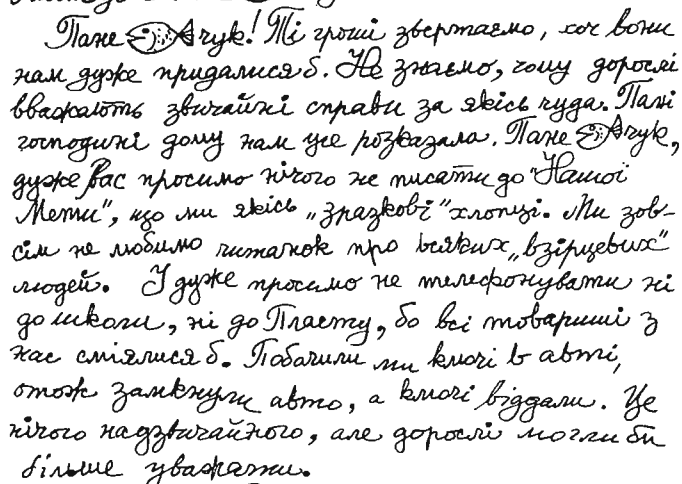 Пане чук! Ті гроші звертаємо, хоч вони
нам дуже придалися б. Не знаємо, чому дорослі
вважають звичайні справи за якісь чуда. Пані
господині дому нам усе розказала. Пане чук,
дуже Вас просимо нічого не писати до "Нашої
Мети", що ми якісь „зразкові" хлопці. Ми зов-
сім не любимо читанок про всяких „взірцевих"
людей. І дуже просимо не телефонувати ні
до школи, ні до Пласту, бо всі товариші з
нас сміялися б. Побачили ми ключі в авті,
отож замкнули авто, а ключі віддали. Це
нічого надзвичайного, але дорослі могли би
більше уважати.